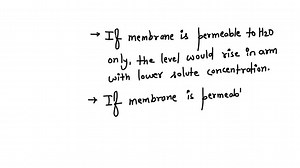 → If membrane is permeable to H2O
only, the level would rise in arm
with lower solute concentration.
→ If membrane is permeab